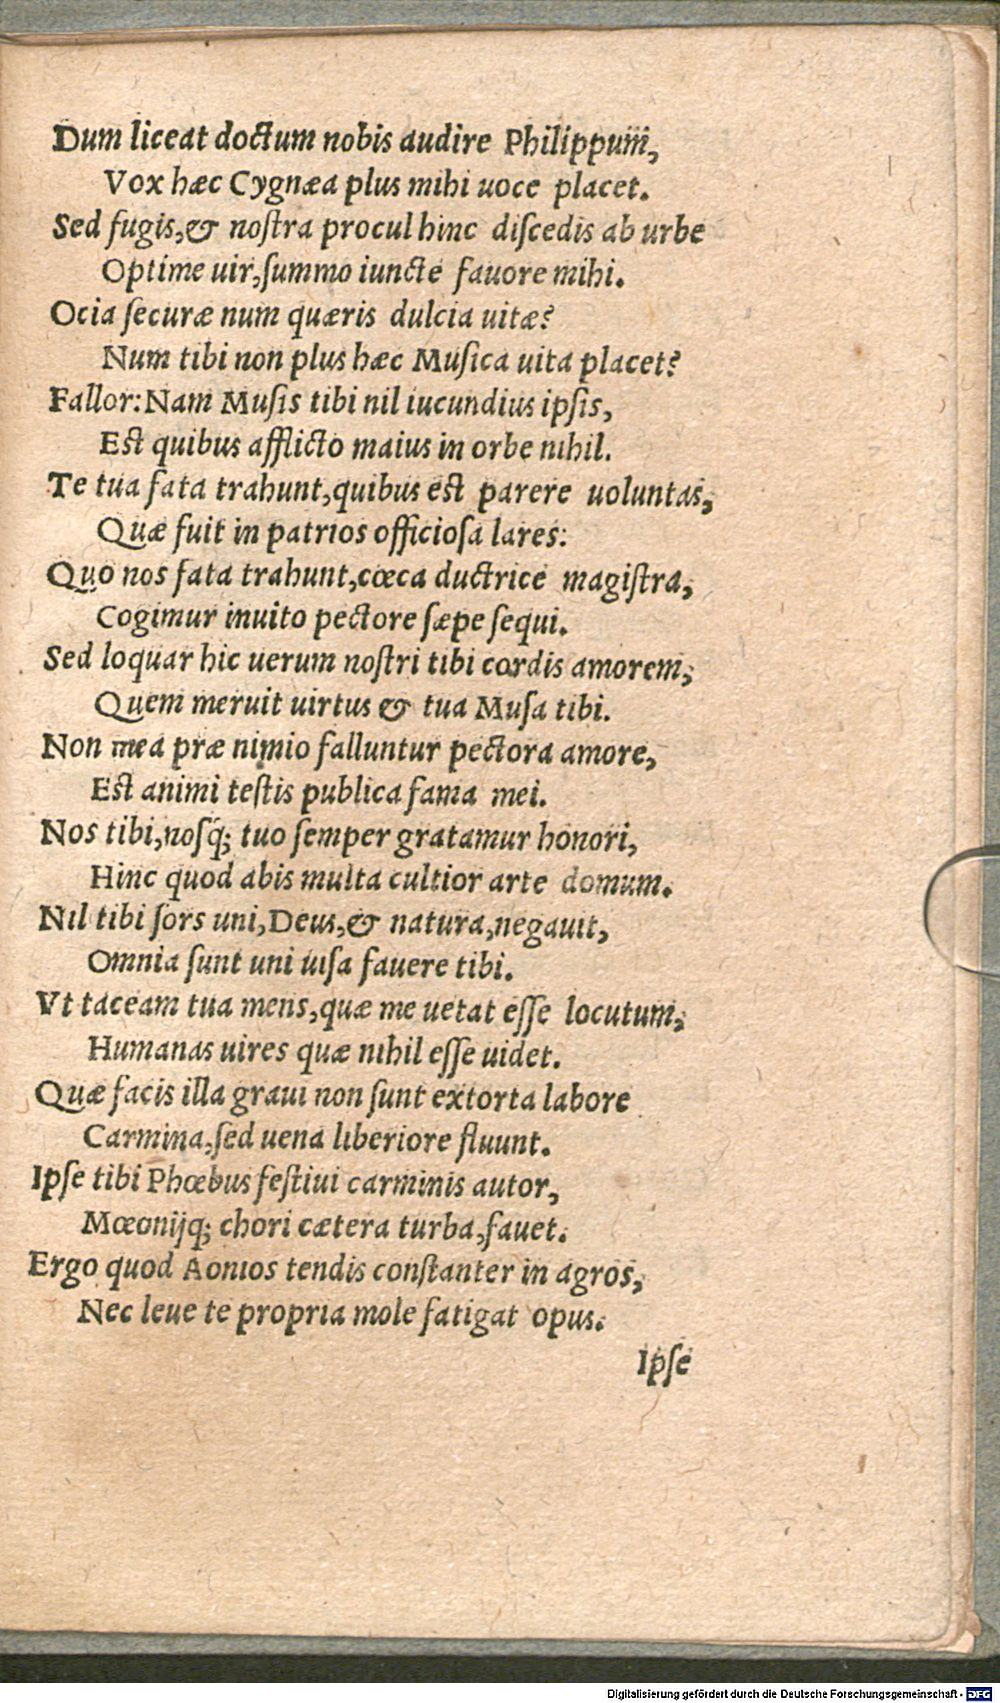 Dum liceat doctum nobis audire Philippum,
Vox hæc Cygnæa plus mihi uoce placet.
Sed fugis,& noſtra procul hinc diſcedis ab urbe
Optime uir,ſummo iuncte fauore mihi.
Ocia ſecuræ num quæris dulcia uitæ?
Num tibi non plus hæc Muſica uita placet?
Fallor:Nam Muſis tibi nil iucundius ipſis,
Eſt quibus afflicto maius in orbe nihil.
Te tua fata trahunt,quibus eſt parere uoluntas,
Quæ fuit in patrios officioſa lares:
Quo nos fata trahunt,cœca ductrice magiſtra,
Cogimur inuito pectore ſæpe ſequi.
Sed loquar hic uerum noſtri tibi cordis amorem,
Quem meruit uirtus & tua Muſa tibi.
Non mea præ nimio falluntur pectora amore,
Eſt animi teſtis publica fama mei.
Nos tibi,noſq́; tuo ſemper gratamur honori,
Hinc quod abis multa cultior arte domum.
Nil tibi ſors uni,Deus,& natura,negauit,
Omnia ſunt uni uiſa fauere tibi.
Vt taceam tua mens,quæ me uetat eſſe locutum,
Humanas uires quæ nihil eſſe uidet.
Quæ facis illa graui non ſunt extorta labore
Carmina,ſed uena liberiore fluunt.
Ipſe tibi Phœbus feſtiui carminis autor,
Mœonijq; chori cætera turba,fauet.
Ergo quod Aonios tendis conſtanter in agros,
Nec leue te propria mole fatigat opus.
Ipſe
Digitalisierung gefördert durch die Deutsche Forschungsgemeinschaft - DFG